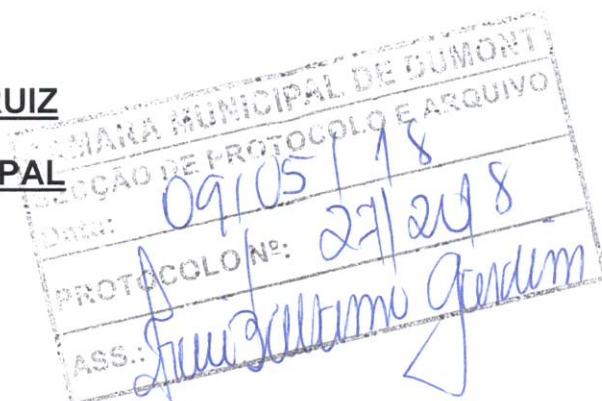 RUIZ
PAL
CÂMARA MUNICIPAL DE DUMONT
SECÇÃO DE PROTOCOLO E ARQUIVO
Data: 09/05/18
PROTOCOLO Nº: 27/2018
ASS.: